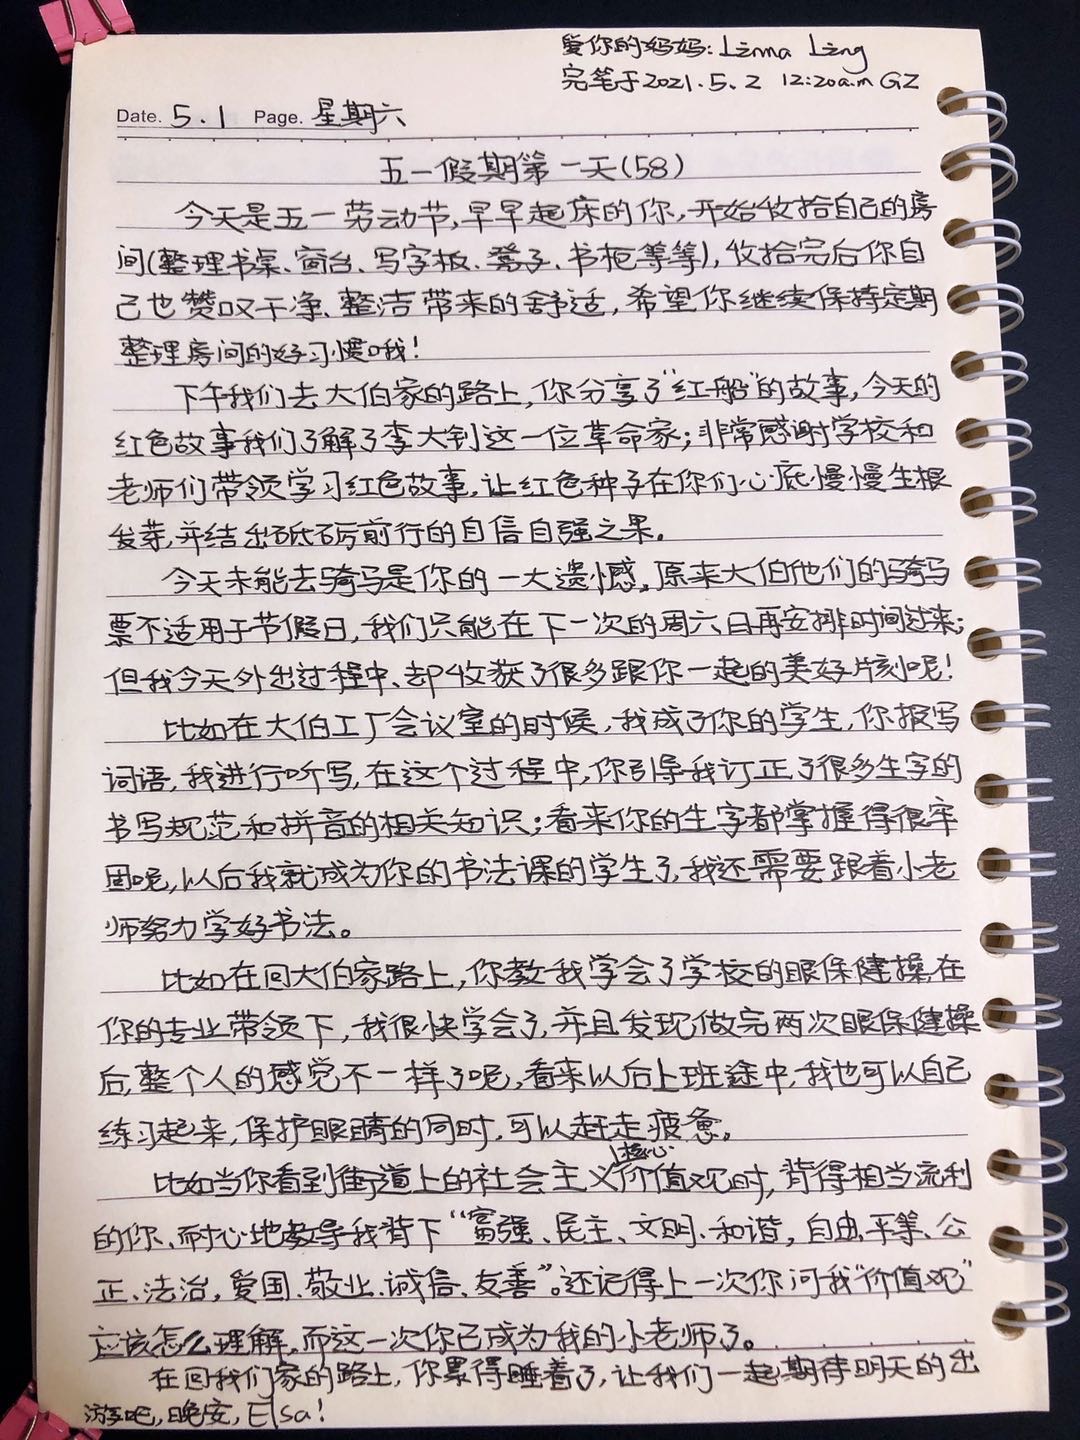 爱你的妈妈：Linna Ling
完笔于2021.5.2 12:20a.m GZ
Date. 5.1 Page. 星期六
五一假期第一天(58)
今天是五一劳动节,早早起床的你,开始收拾自己的房
间(整理书桌、窗台、写字板、凳子、书柜等等),收拾完后你自
己也赞叹干净、整洁带来的舒适,希望你继续保持定期
整理房间的好习惯哦!
下午我们去大伯家的路上,你分享了"红船"的故事,今天的
红色故事我们了解了李大钊这一位革命家;非常感谢学校和
老师们带领学习红色故事,让红色种子在你们心底慢慢生根
发芽,并结出砥砺前行的自信自强之果。
今天未能去骑马是你的一大遗憾,原来大伯他们的骑马
票不适用于节假日,我们只能在下一次的周六日再安排时间过来;
但我今天外出过程中、却收获了很多跟你一起的美好片刻呢!
比如在大伯工厂会议室的时候,我成了你的学生,你报写
词语,我进行听写,在这个过程中,你引导我订正了很多生字的
书写规范和拼音的相关知识;看来你的生字都掌握得很牢
固呢,以后我就成为你的书法课的学生了,我还需要跟着小老
师努力学好书法。
比如在回大伯家路上,你教我学会了学校的眼保健操,在
你的专业带领下,我很快学会了,并且发现做完两次眼保健操
后,整个人的感觉不一样了呢,看来以后上班途中,我也可以自己
练习起来,保护眼睛的同时,可以赶走疲惫。
比如当你看到街道上的社会主义核心价值观时,背得相当流利
的你、耐心地教导我背下"富强、民主、文明、和谐,自由、平等、公
正、法治,爱国、敬业、诚信、友善"。还记得上一次你问我"价值观"
应该怎么理解,而这一次你已成为我的小老师了。
在回我们家的路上,你累得睡着了,让我们一起期待明天的出
游吧,晚安,Elsa!